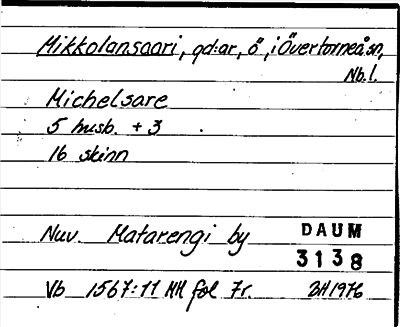 Mikkolansaari, gd:ar, ö, i Övertorneå sn,
Nb.l.
Michelsare
5 husb. + 3
16 skinn
Nuv. Matarengi by
DAUM
3138
Vb 1567:11 HH fol 7r.
2H1976